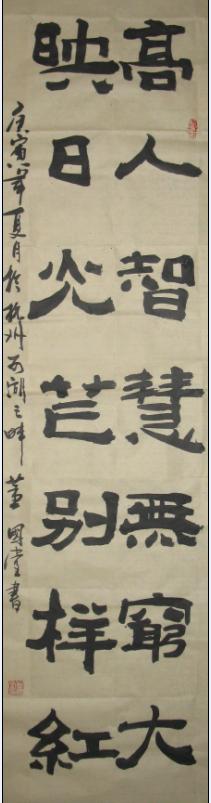 高人智慧無窮大
映日光芒别样紅
庚寅年夏月於杭州西湖之畔 董國堂書